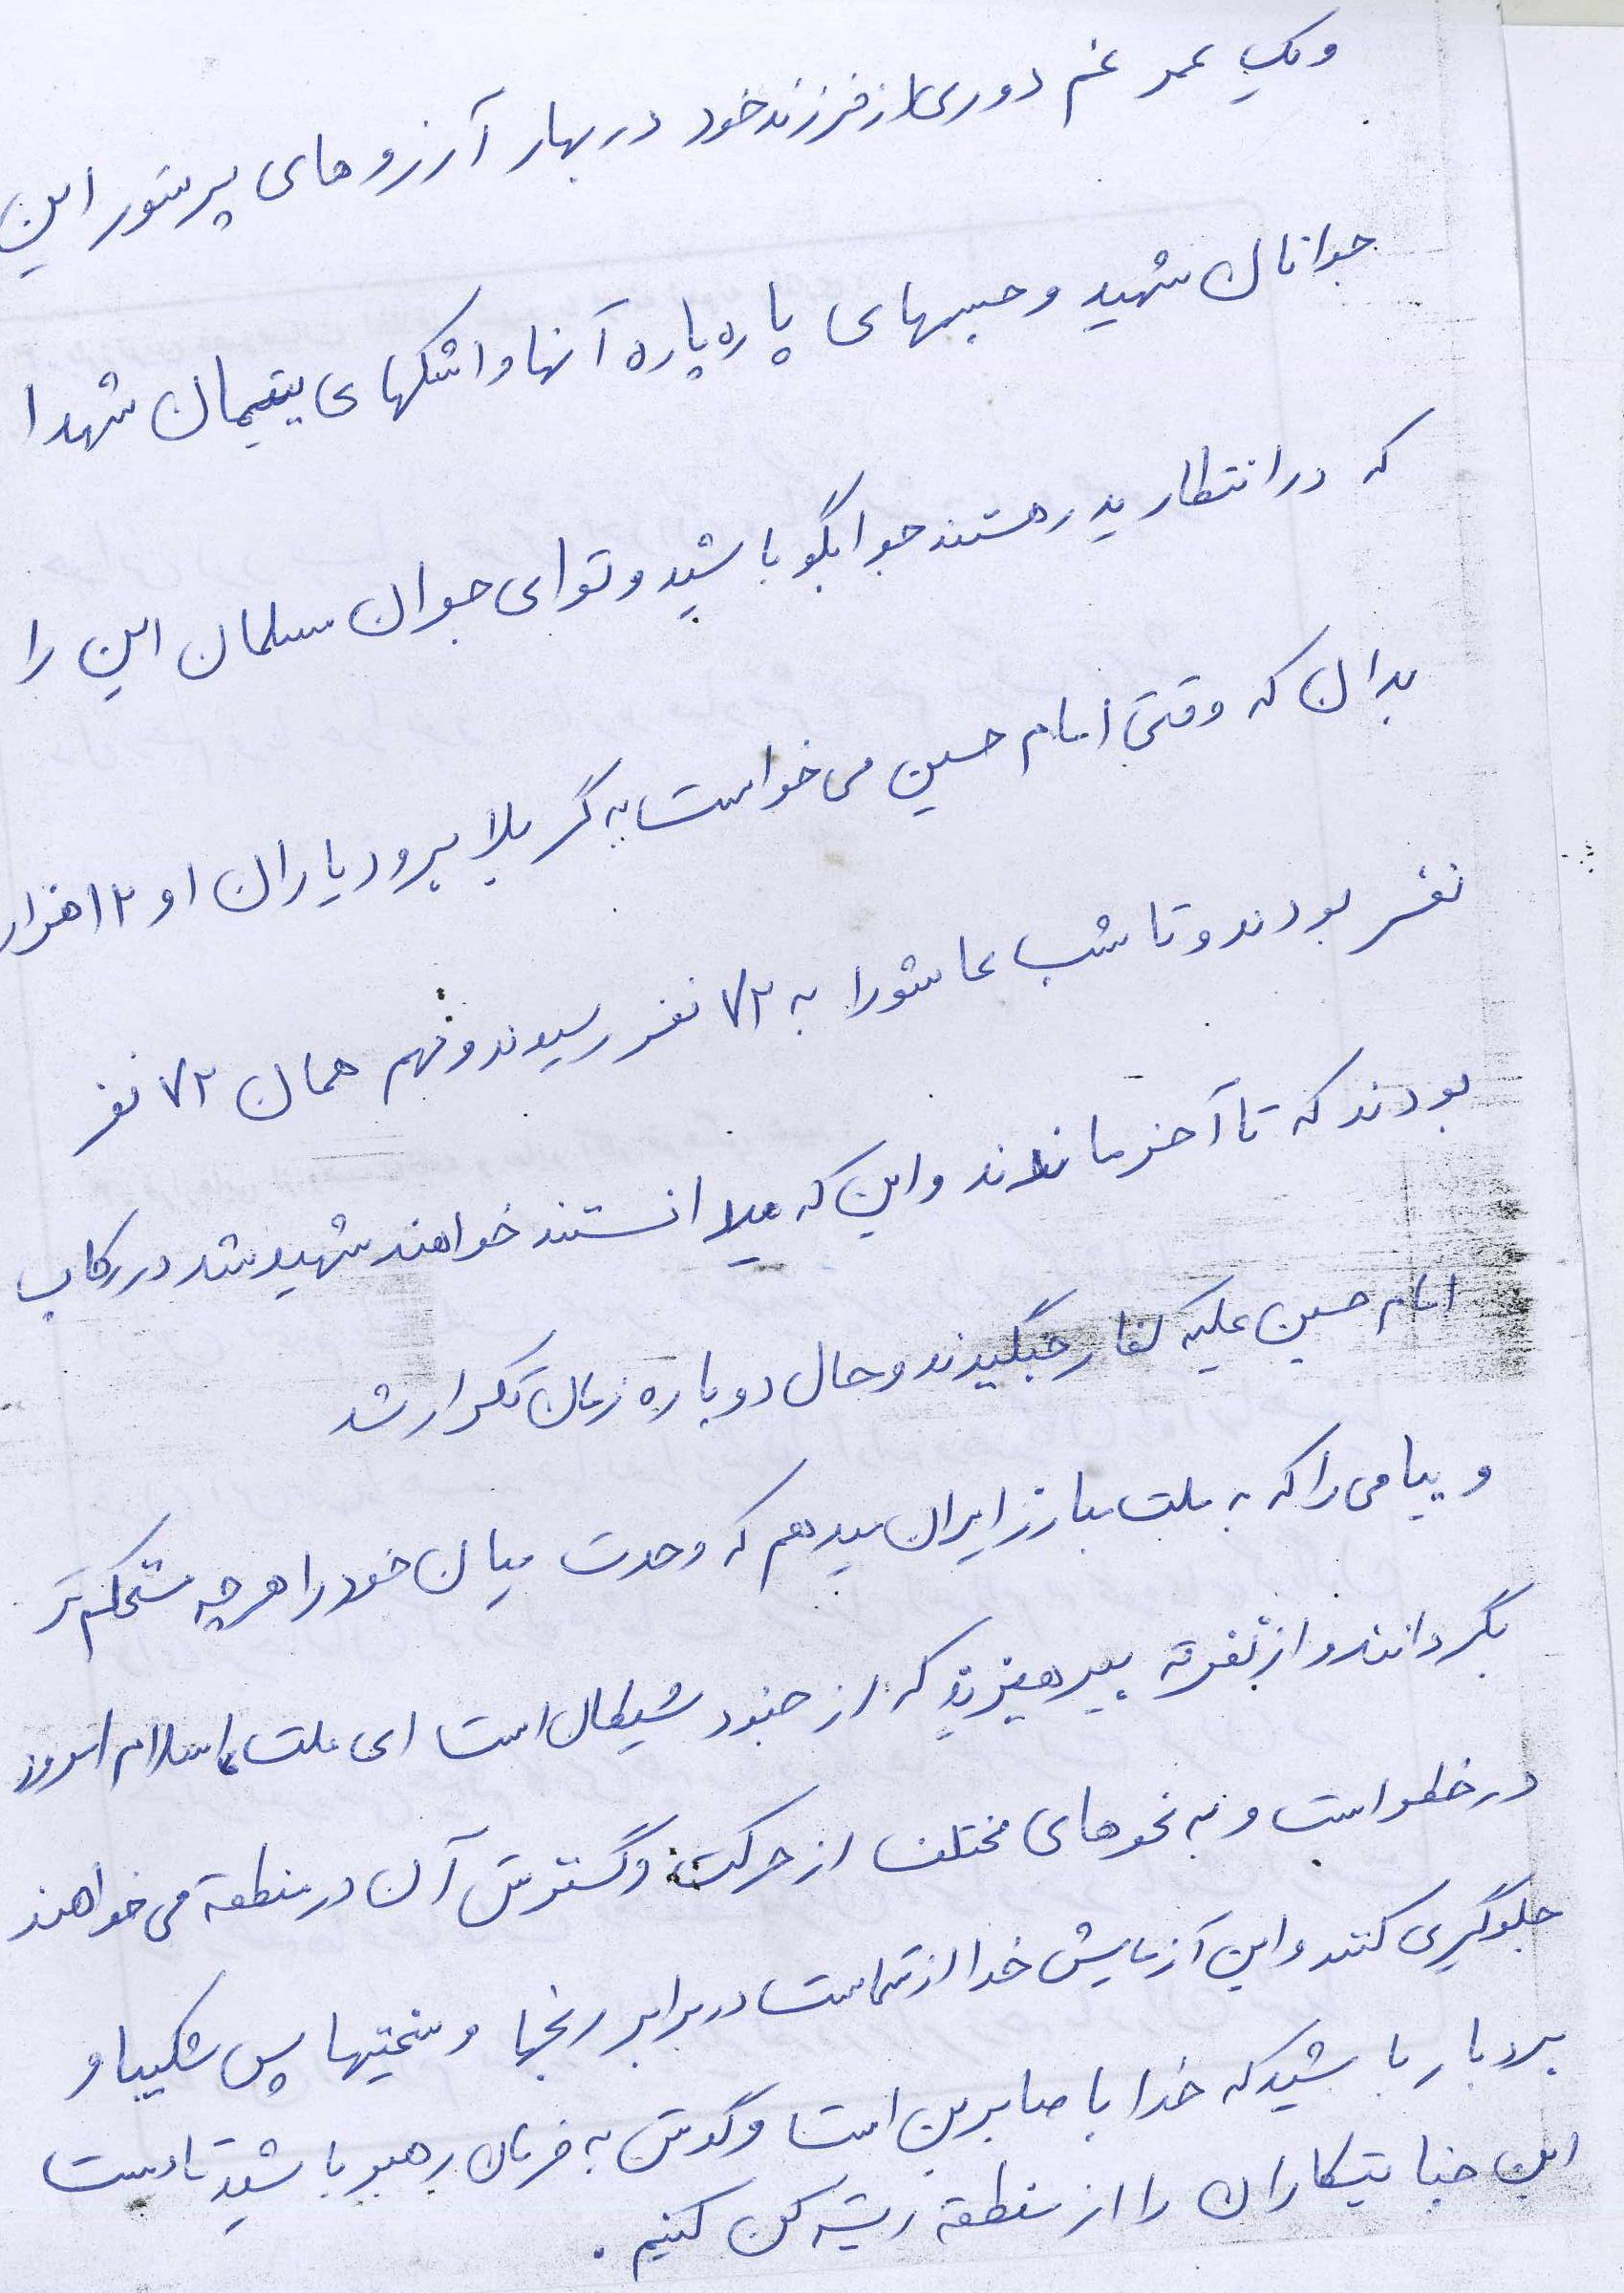 ویک عمر غم دوری از فرزند خود در بهار آرزوهای پرشور این
جوانان شهید و جسمهای پاره پاره آنها و اشکهای یتیمان شهدا
که در انتظار پدر هستند جوابگو باشید و تو ای جوان مسلمان این را
بدان که وقتی امام حسین می خواست به کربلا برود یاران او ۱۲ هزار
نفر بودند و تا شب عاشورا به ۷۲ نفر رسیدند و فهم همان ۷۲ نفر
بودند که تا آخر ماندند و این که میدانستند خواهند شهید شد در رکاب
امام حسین علیه کفار جنگیدند و حال دوباره زمان تکرار شد
و پیامی را که به ملت مبارز ایران میدهم که وحدت میان خود را هر چه مستحکم تر
بگردانند و از تفرقه بپرهیزید که از جنود شیطان است ای ملت اسلام امروز
در خطر است و به نحوهای مختلف از حرکت و گسترش آن در منطقه می خواهند
جلوگیری کنند و این آزمایش خدا از شماست در برابر رنجها و سختیها پس شکیبا و
بردبار باشید که خدا با صابرین است و گوش به فرمان رهبر باشید تا دست
این جنایتکاران را از منطقه ریشه کن کنیم .